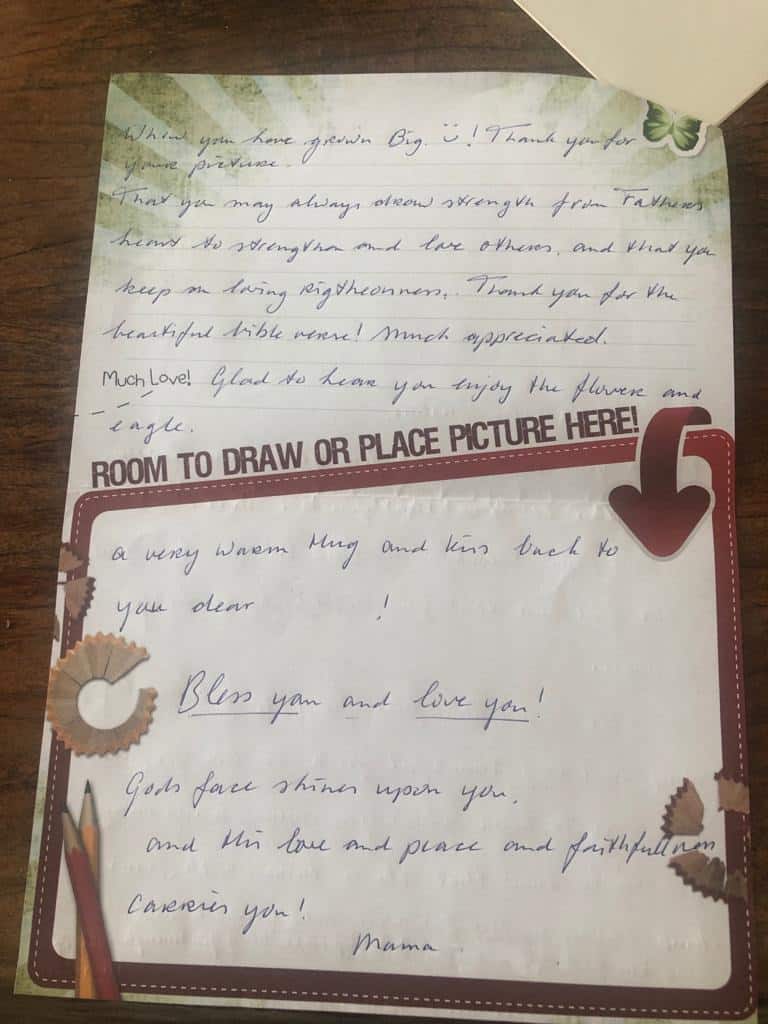 When you have grown Big. ü! Thank you for
your picture.
That you may always draw strength from Fathers
heart to strengthen and love others, and that you
keep on loving rigtheousness. Thank you for the
beautiful bible verse! Much appreciated.
Much Love! Glad to hear you enjoy the flowers and
eagle.
ROOM TO DRAW OR PLACE PICTURE HERE!
a very warm Hug and kiss back to
you dear !
Bless you and love you!
Gods face shines upon you,
and His love and peace and faithfullness
carries you!
Mama